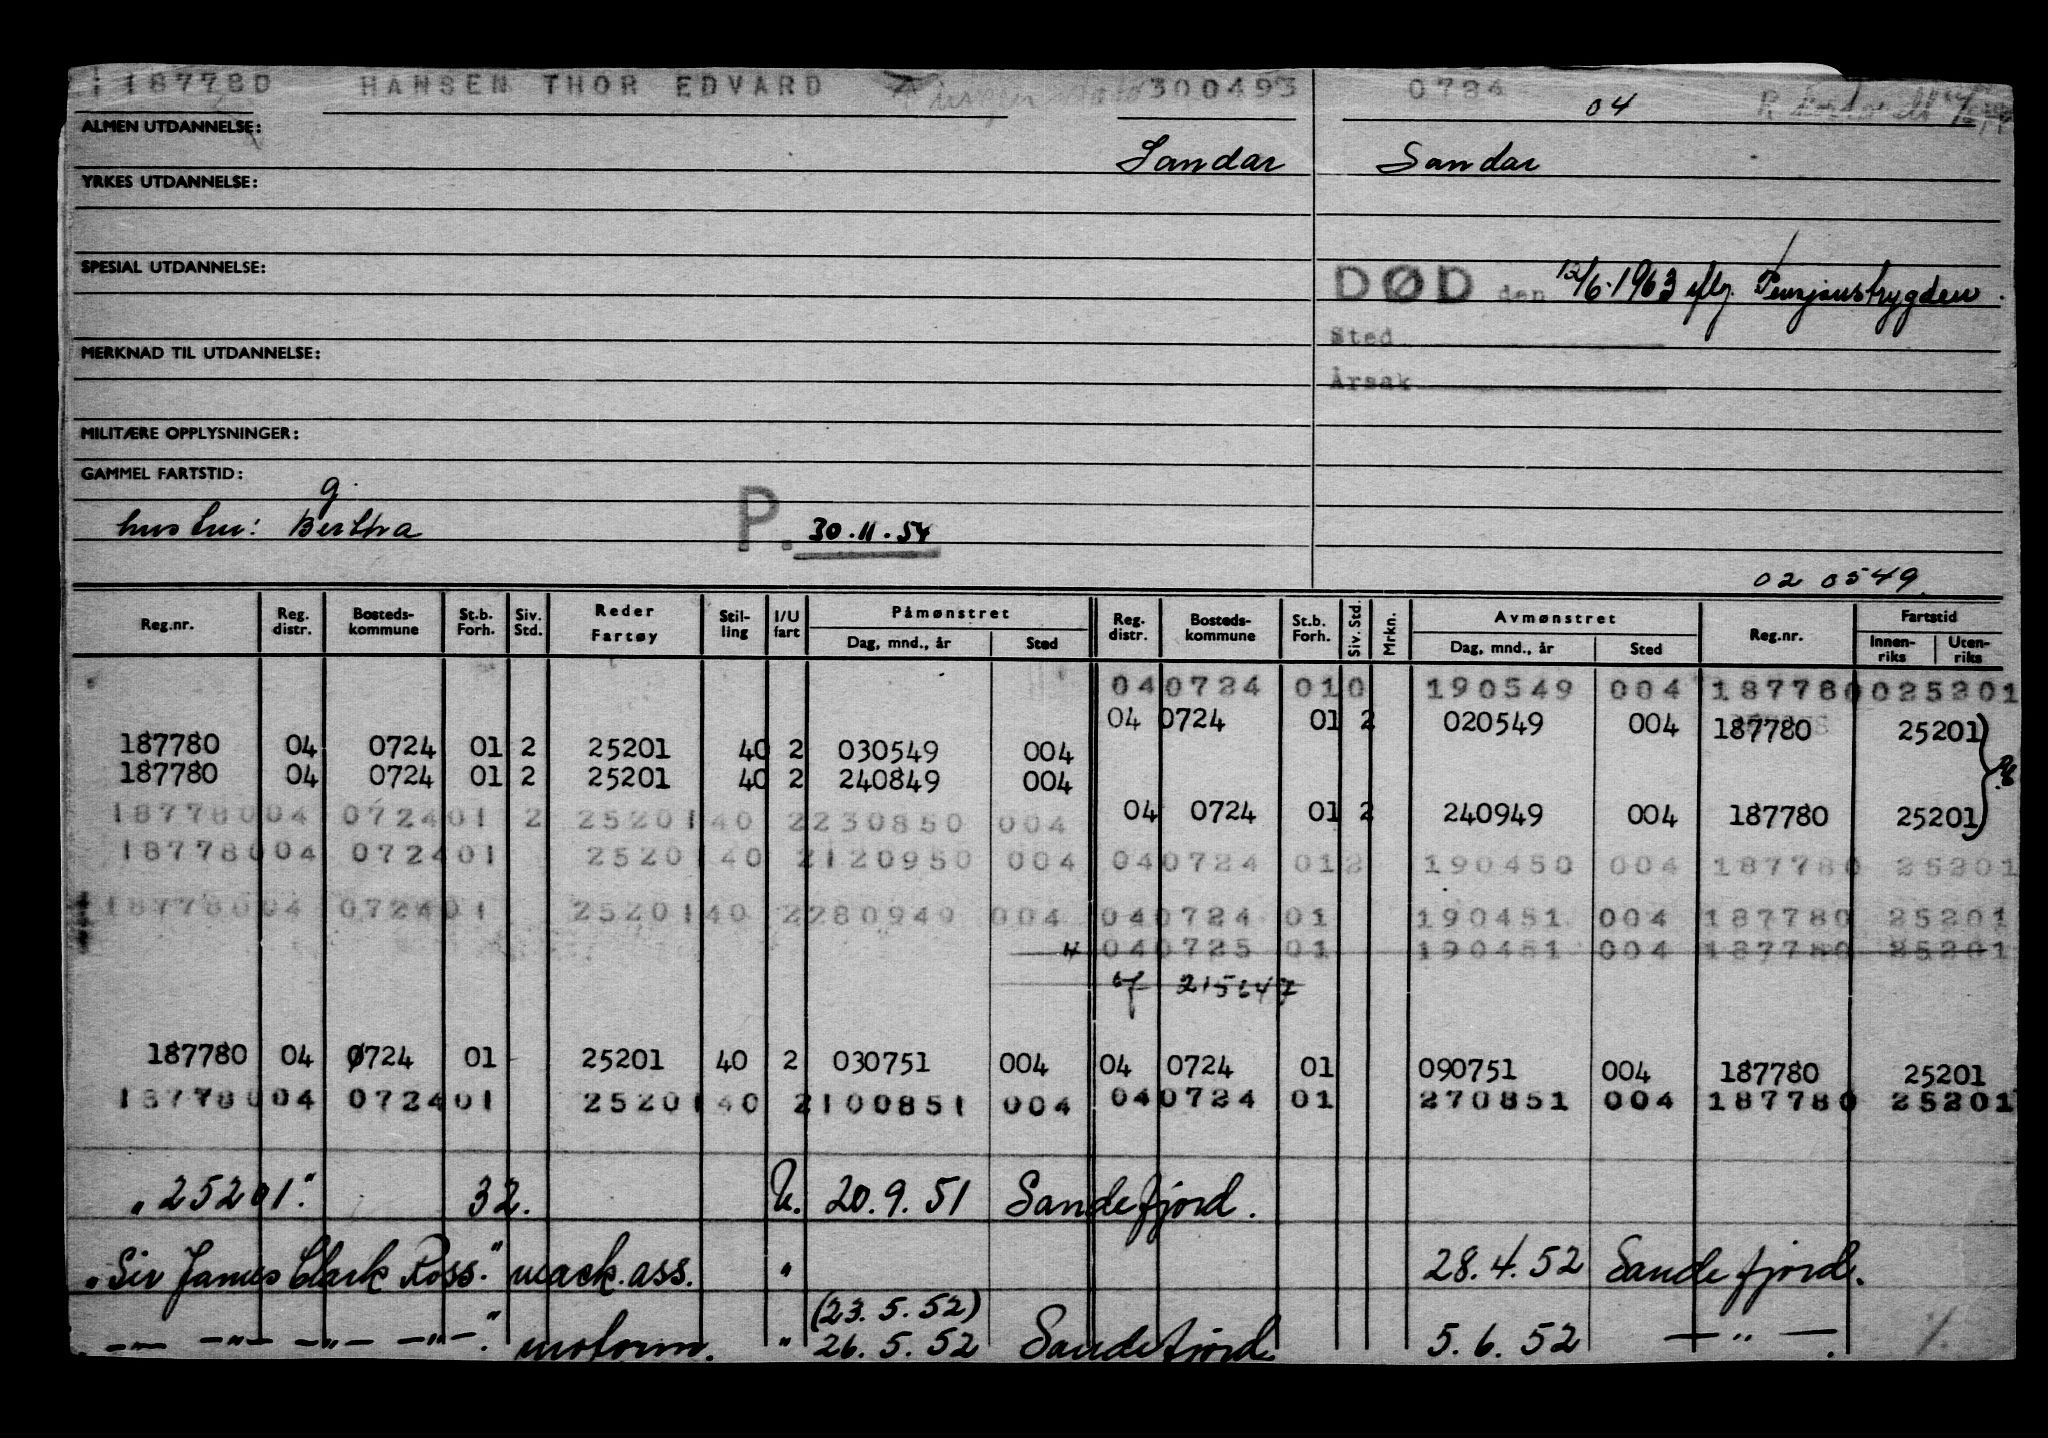 187780 HANSEN THOR EDVARD 300493 0724 04
ALMEN UTDANNELSE:
Sandar Sandar
YRKES UTDANNELSE:
SPESIAL UTDANNELSE:
DØD den 12/6.1963 eflg. Pensjonstrygden.
Sted
MERKNAD TIL UTDANNELSE:
Årsak
MILITÆRE OPPLYSNINGER:
GAMMEL FARTSTID:
g.
hustru: Bertha P. 30.11.54
02 0549
Reg.nr. Reg. distr. Bosteds-kommune St.b. Forh. Siv. Std. Reder Fartøy Stil-ling I/U fart Påmønstret Dag, mnd., år Sted Reg. distr. Bosteds-kommune St.b. Forh. Siv. Std. Mrkn. Avmønstret Dag, mnd., år Sted Reg.nr. Fartstid Innen-riks Uten-riks
04 0724 01 0 190549 004 187780 025201
04 0724 01 2 020549 004 187780 25201
187780 04 0724 01 2 25201 40 2 030549 004
187780 04 0724 01 2 25201 40 2 240849 004
04 0724 01 2 240949 004 187780 25201
187780 04 0724 01 2 25201 40 2 230850 004
187780 04 0724 01 25201 40 2 120950 004 04 0724 01 2 190450 004 187780 25201
187780 04 0724 01 25201 40 2 280949 004 04 0724 01 190451 004 187780 25201
04 0725 01 190451 004 187780 25201
215647
187780 04 0724 01 25201 40 2 030751 004 04 0724 01 090751 004 187780 25201
187780 04 0724 01 25201 40 2 100851 004 04 0724 01 270851 004 187780 25201
"25201". 32. U. 20.9.51 Sandefjord.
"Sir James Clark Ross." mask.ass. " 28.4.52 Sandefjord.
(23.5.52)
—"— —"— —"— —"— " motorm. " 26.5.52 Sandefjord 5.6.52 —"—.